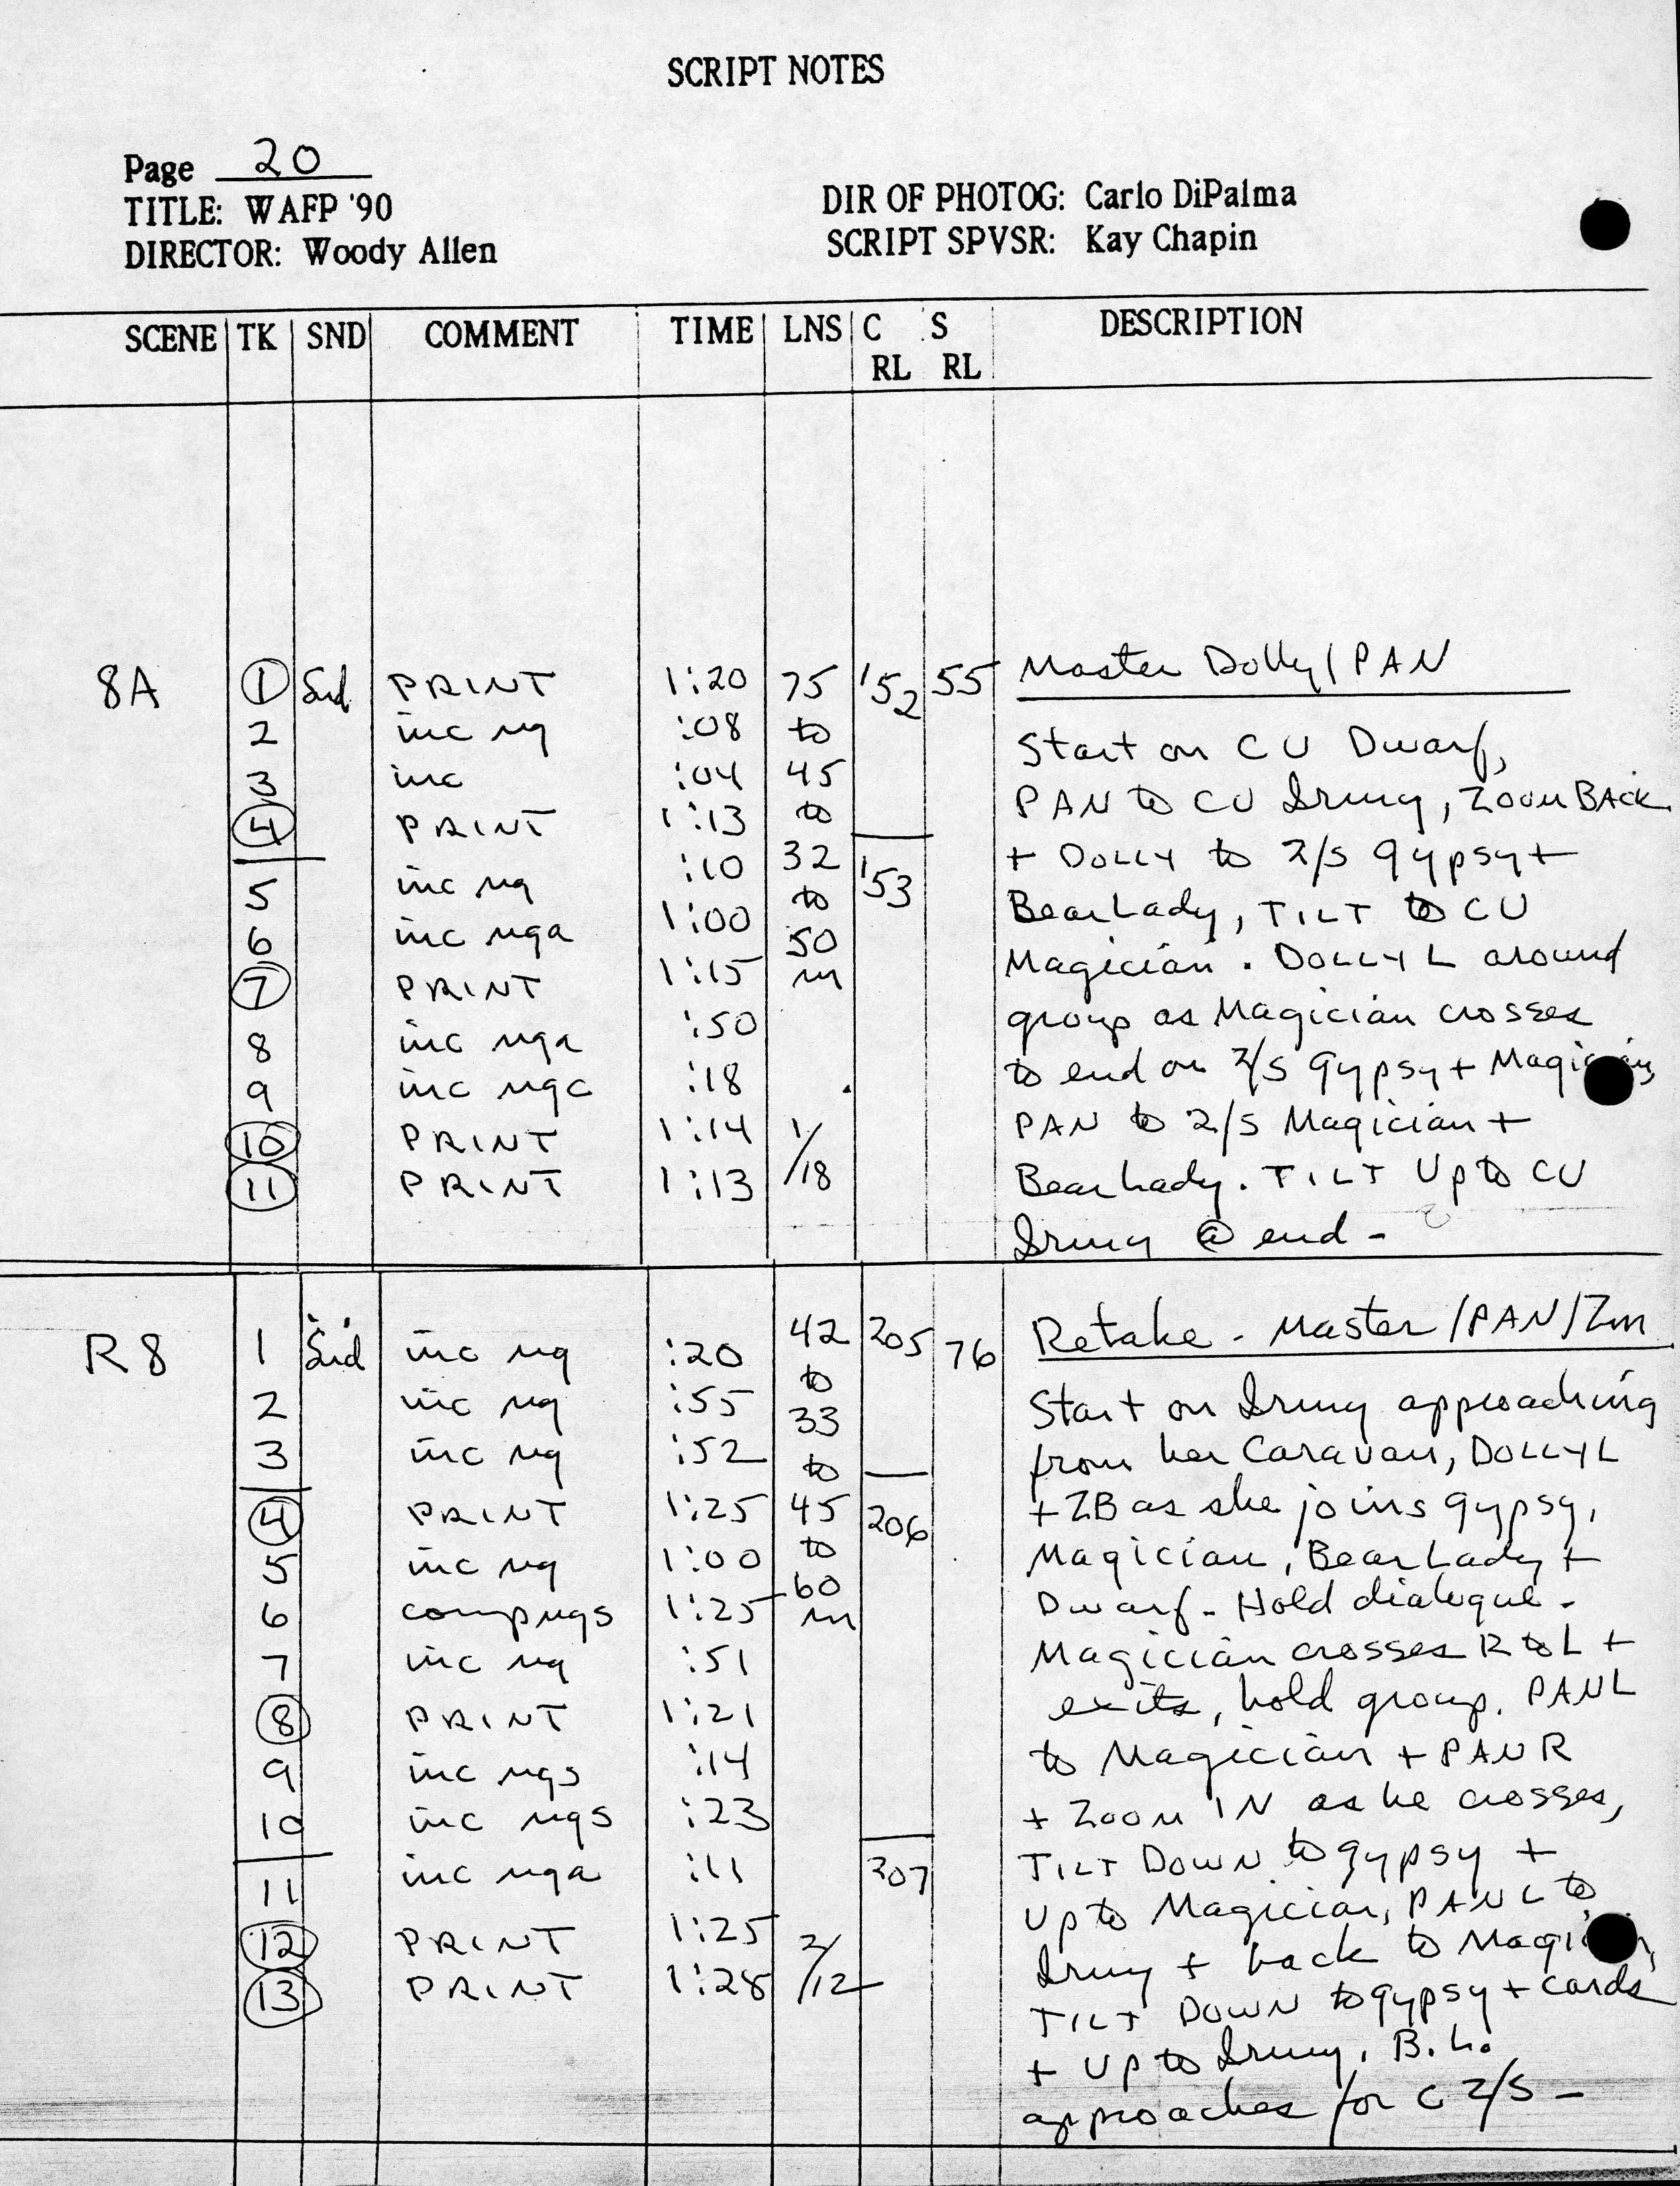 SCRIPT NOTES
Page 20
TITLE: WAFP '90
DIRECTOR: Woody Allen
DIR OF PHOTOG: Carlo DiPalma
SCRIPT SPVSR: Kay Chapin
SCENE TK SND COMMENT TIME LNS C RL S RL DESCRIPTION
8A 1 Snd PRINT 1:20 75 152 55 Master Dolly/PAN
2 inc ng :08 to Start on CU Dwarf,
3 inc :04 45 PAN to CU Irmy, ZOOM BACK
4 PRINT 1:13 to
5 inc ng :10 32 153 + DOLLY to 2/S gypsy +
6 inc nga 1:00 to BearLady, TILT to CU
7 PRINT 1:15 50 m Magician. DOLLY L around
8 inc nga :50 group as Magician crosses
9 inc ngc :18 to end on 2/S gypsy + Magician,
10 PRINT 1:14 1/18 PAN to 2/S Magician +
11 PRINT 1:13 BearLady. TILT Up to CU
Irmy @ end -
R8 1 Snd inc ng :20 42 205 76 Retake - Master/PAN/Zm
2 inc ng :55 to Start on Irmy approaching
3 inc ng :52 33 to from her Caravan, DOLLY L
4 PRINT 1:25 45 206 + ZB as she joins gypsy,
5 inc ng 1:00 to Magician, BearLady +
6 comp ngs 1:25 60 m Dwarf - Hold dialogue -
7 inc ng :51 Magician crosses R to L +
8 PRINT 1:21 exits, hold group. PAN L
9 inc ngs :14 to Magician + PAN R
10 inc ngs :23 + ZOOM IN as he crosses,
11 inc nga :11 207 TILT DOWN to gypsy +
12 PRINT 1:25 2/12 Up to Magician, PAN L to
13 PRINT 1:28 Irmy + back to Magician,
TILT DOWN to gypsy + cards
+ Up to Irmy, B.L.
approaches for C 2/S -